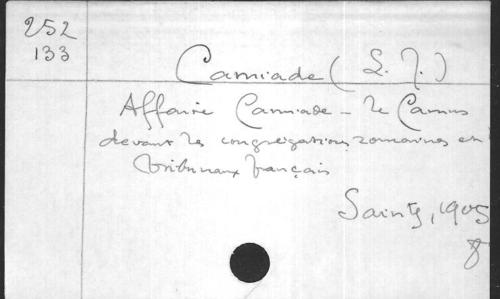 252
133
Camiade (L. J.)
Affaire Camiade - le Camus
devant les congrégations romaines et
tribunaux français
Saints, 1905
8